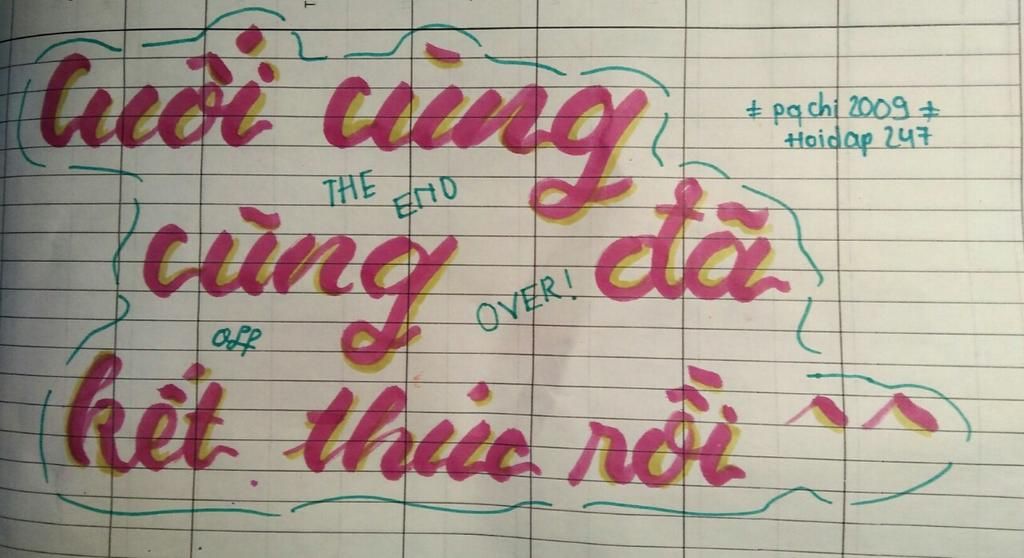 Cuối cùng
‡ pqchi 2009 ‡
Hoidap 247
THE END
cũng đã
OVER!
off
kết thúc rồi ^ ^